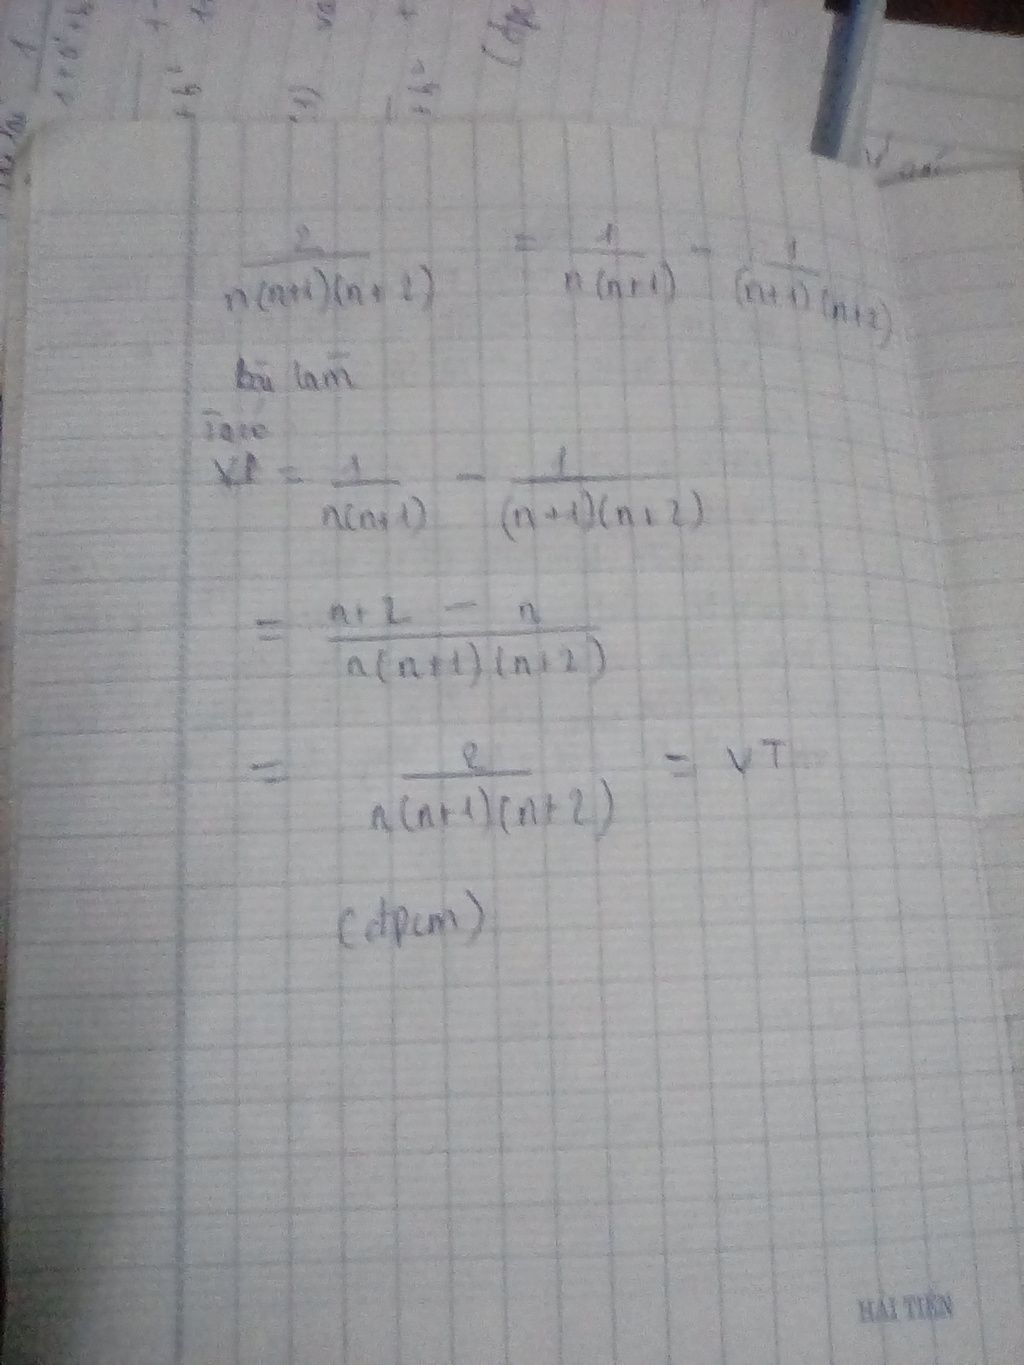 2/(n(n+1)(n+2)) = 1/(n(n+1)) - 1/((n+1)(n+2))
Bài làm
Ta có
VP = 1/(n(n+1)) - 1/((n+1)(n+2))
= (n+2 - n)/(n(n+1)(n+2))
= 2/(n(n+1)(n+2)) = VT
(đpcm)
HẢI TIẾN